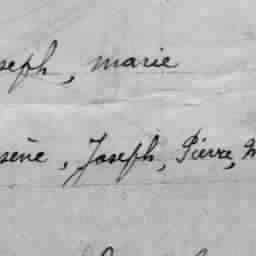 seph, marie
sène, Joseph, Pierre, M